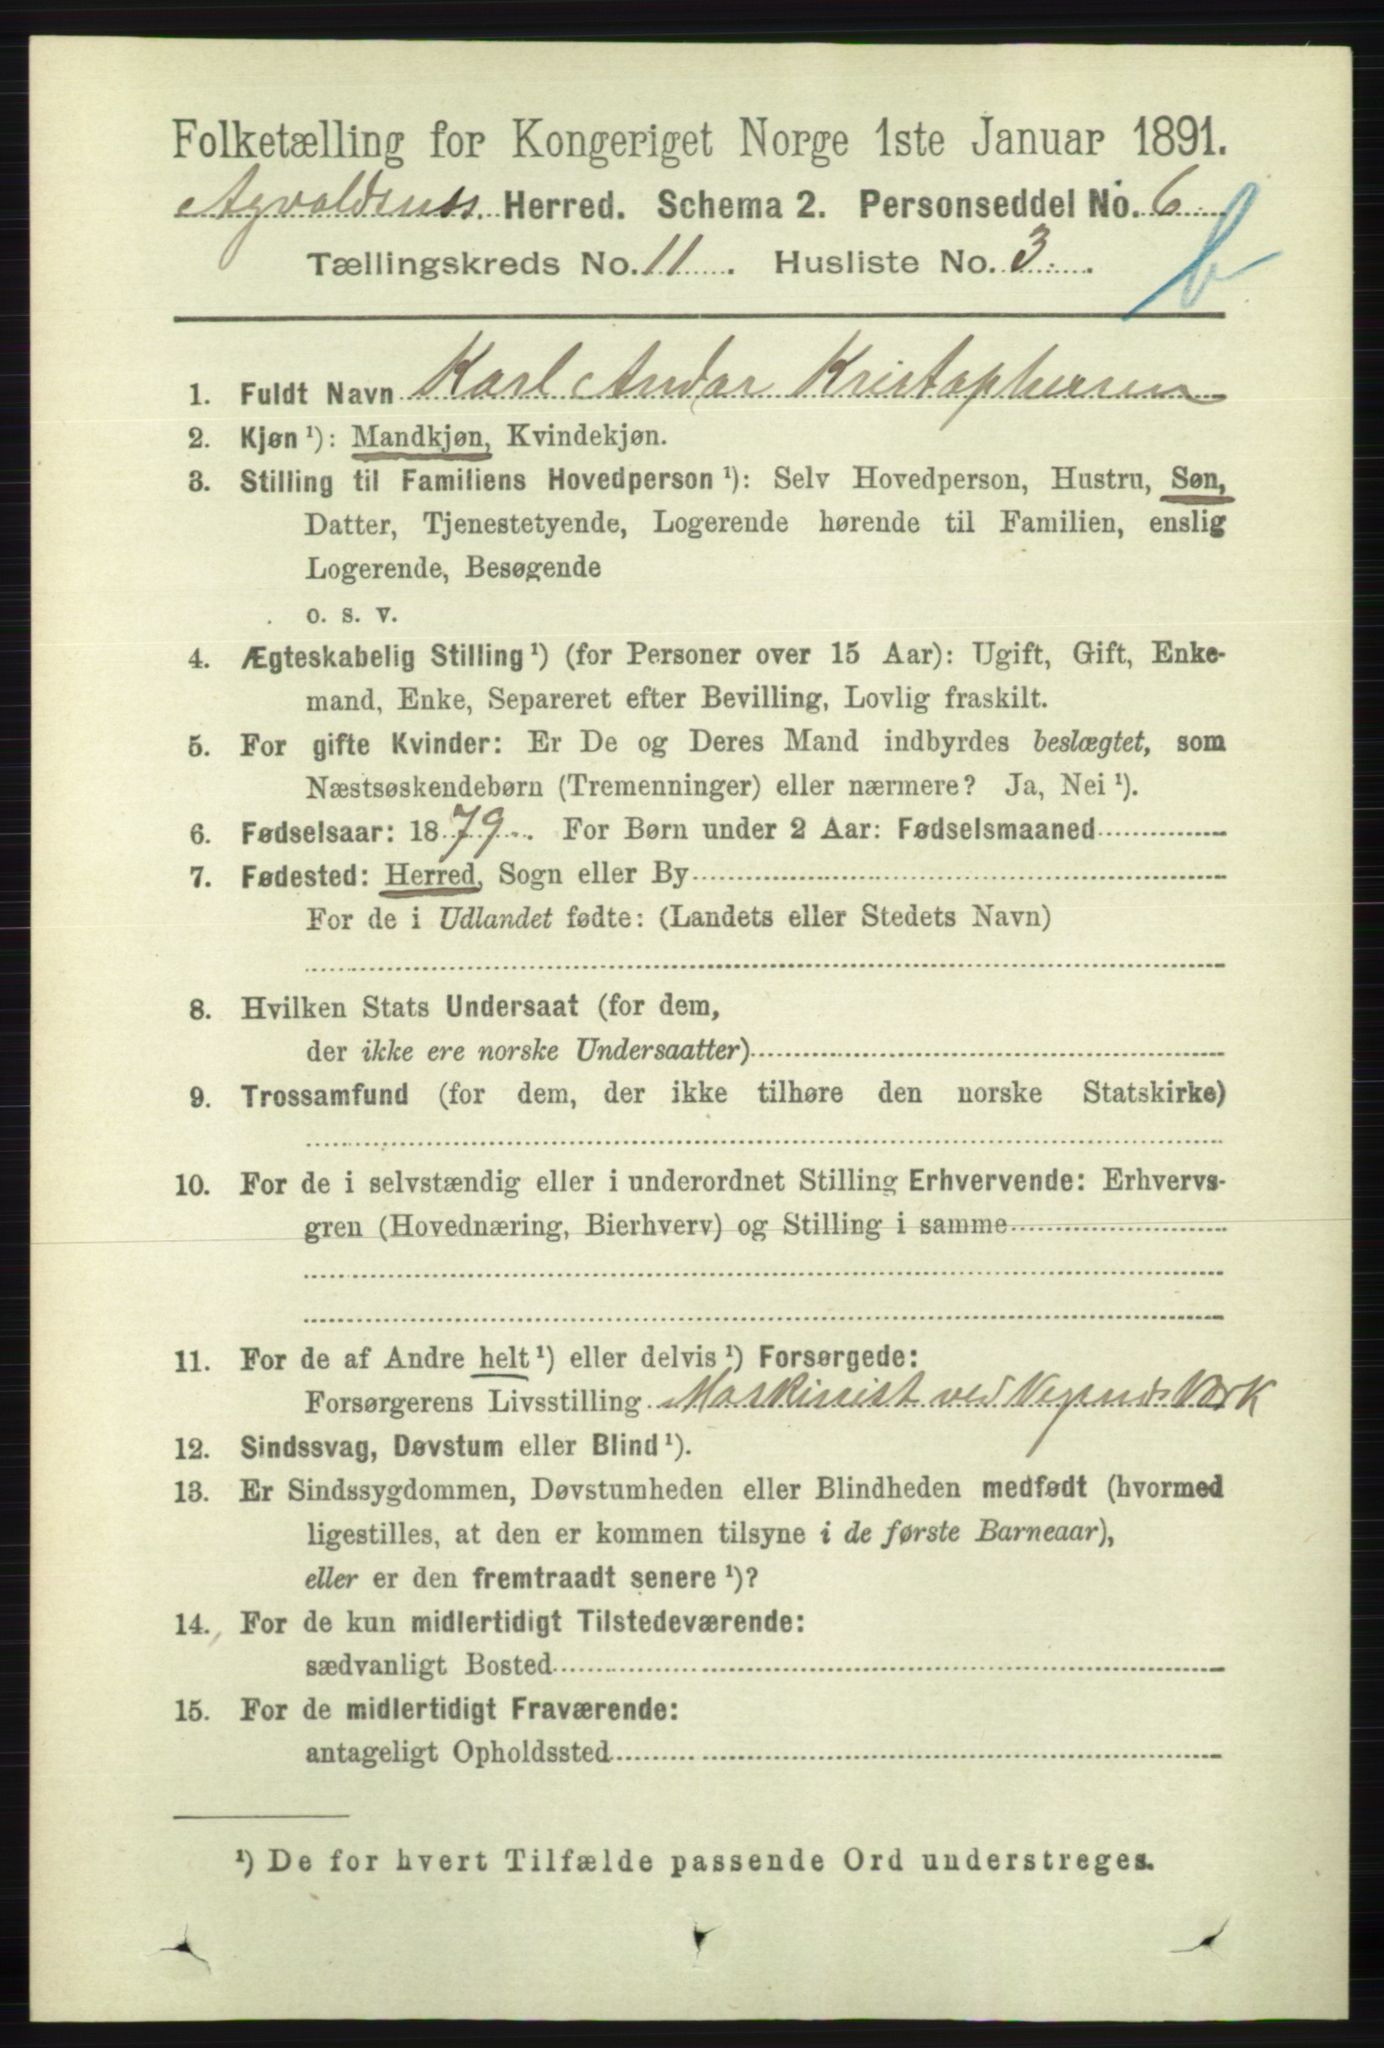 Folketælling for Kongeriget Norge 1ste Januar 1891.
Agvaldsnes Herred. Schema 2. Personseddel No. 6
b
Tællingskreds No. 11. Husliste No. 3.
1. Fuldt Navn Karl Andor Kristophersen
2. Kjøn ¹): Mandkjøn, Kvindekjøn.
3. Stilling til Familiens Hovedperson ¹): Selv Hovedperson, Hustru, Søn,
Datter, Tjenestetyende, Logerende hørende til Familien, enslig
Logerende, Besøgende
o. s. v.
4. Ægteskabelig Stilling ¹) (for Personer over 15 Aar): Ugift, Gift, Enke-
mand, Enke, Separeret efter Bevilling, Lovlig fraskilt.
5. For gifte Kvinder: Er De og Deres Mand indbyrdes beslægtet, som
Næstsøskendebørn (Tremenninger) eller nærmere? Ja, Nei ¹).
6. Fødselsaar: 1879. For Børn under 2 Aar: Fødselsmaaned
7. Fødested: Herred, Sogn eller By
For de i Udlandet fødte: (Landets eller Stedets Navn)
8. Hvilken Stats Undersaat (for dem,
der ikke ere norske Undersaatter)
9. Trossamfund (for dem, der ikke tilhøre den norske Statskirke)
10. For de i selvstændig eller i underordnet Stilling Erhvervende: Erhvervs-
gren (Hovednæring, Bierhverv) og Stilling i samme
11. For de af Andre helt ¹) eller delvis ¹) Forsørgede:
Forsørgerens Livsstilling Maskinist ved Vignæs Værk
12. Sindssvag, Døvstum eller Blind ¹).
13. Er Sindssygdommen, Døvstumheden eller Blindheden medfødt (hvormed
ligestilles, at den er kommen tilsyne i de første Barneaar),
eller er den fremtraadt senere ¹)?
14. For de kun midlertidigt Tilstedeværende:
sædvanligt Bosted
15. For de midlertidigt Fraværende:
antageligt Opholdssted
¹) De for hvert Tilfælde passende Ord understreges.